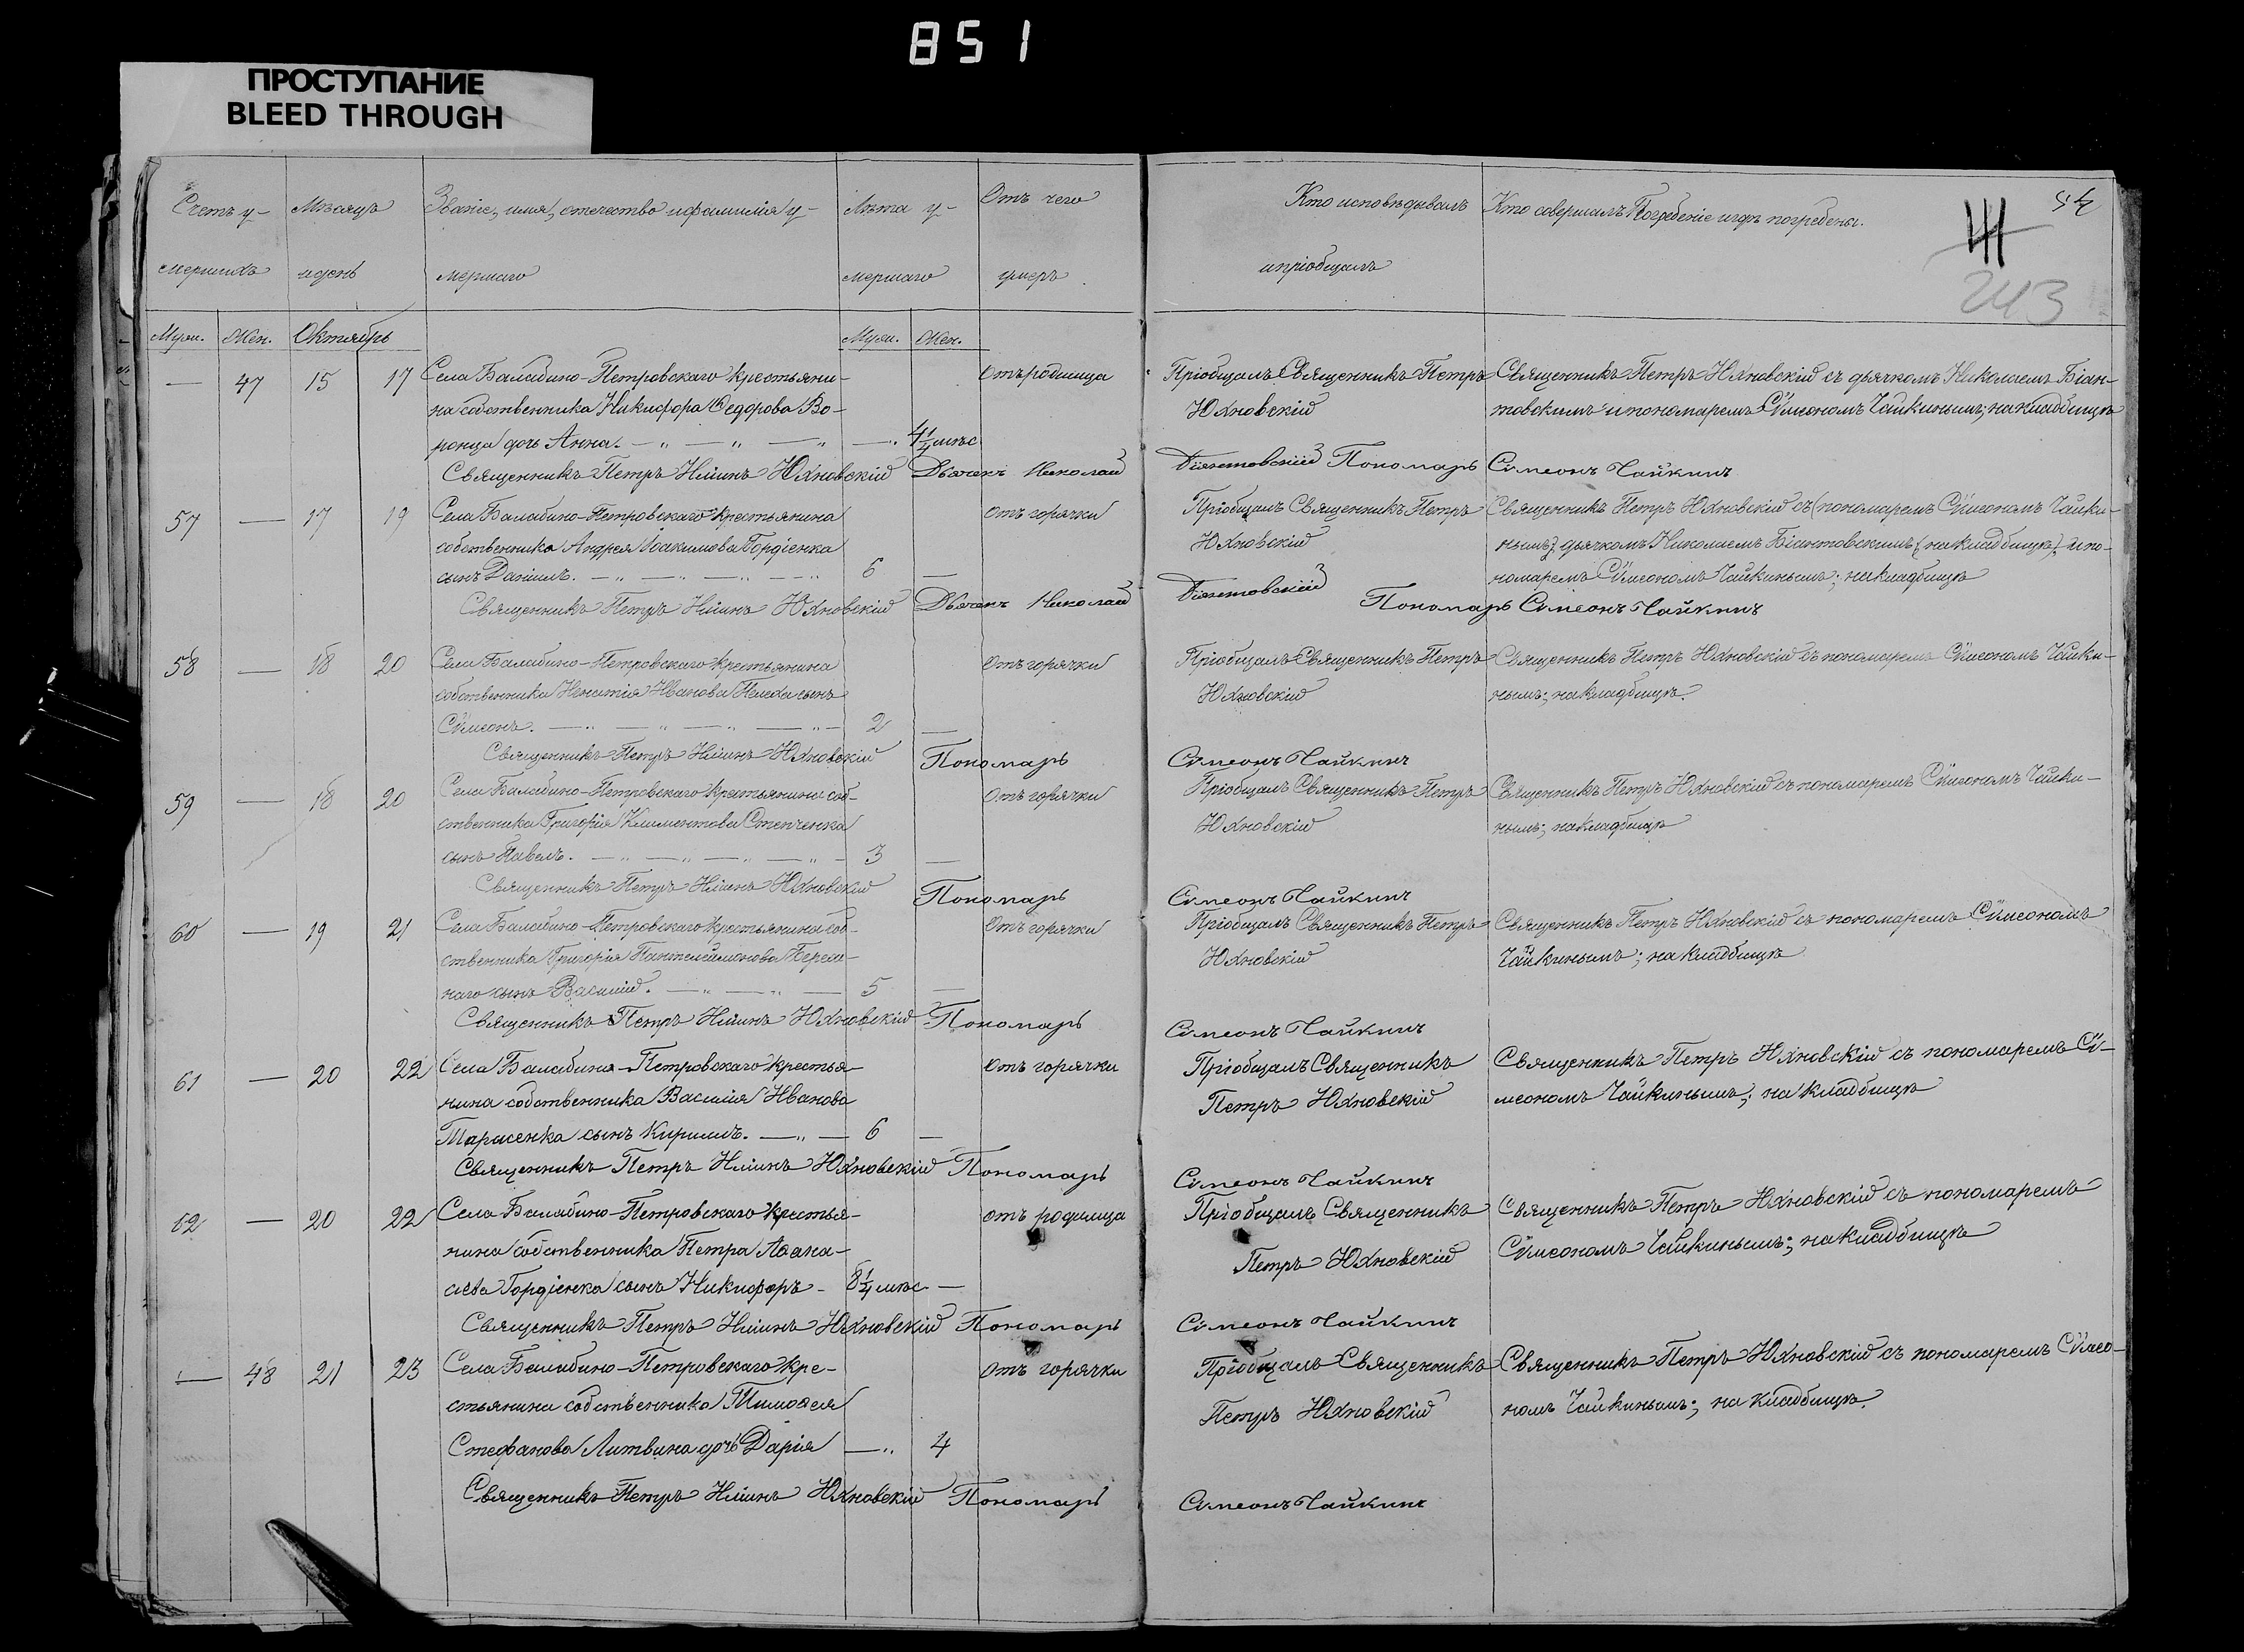 851
ПРОСТУПАНИЕ
BLEED THROUGH
54
243
Счетъ у- Мѣсяцъ Званіе, имя, отчество и фамилія у- Лѣта у- Отъ чего Кто исповѣдывалъ Кто совершалъ Погребеніе и гдѣ погребены.
мершихъ и день мершаго мершаго умеръ и пріобщалъ
Муж. Жен. Октябрь Муж. Жен.
— 47 15 17 Села Балабино-Петровскаго крестьяни- Отъ родимца Пріобщалъ Священникъ Петръ Священникъ Петръ Юхновскій съ дьячкомъ Николаемъ Біан-
на собственника Никифора Ѳедорова Во- Юхновскій товскимъ и пономаремъ Сѵмеономъ Чайкинымъ; на кладбищѣ
ронца дочь Анна. — „ — „ — „ — „ 4½ мѣс
Священникъ Петръ Іліинъ Юхновскій Дьячекъ Николай Біянтовскій Пономарь Симеонъ Чайкинъ
57 — 17 19 Села Балабино-Петровскаго крестьянина Отъ горячки Пріобщалъ Священникъ Петръ Священникъ Петръ Юхновскій съ (пономаремъ Сѵмеономъ Чайки-
собственника Андрея Іоакимова Гордіенка Юхновскій нымъ) дьячкомъ Николаемъ Біантовскимъ (на кладбищѣ) и по-
сынъ Даніилъ. — „ — „ — „ — „ 6 — номаремъ Сѵмеономъ Чайкинымъ; на кладбищѣ
Священникъ Петръ Іліинъ Юхновскій Дьячекъ Николай Біянтовскій Пономарь Симеонъ Чайкинъ
58 — 18 20 Села Балабино-Петровскаго крестьянина Отъ горячки Пріобщалъ Священникъ Петръ Священникъ Петръ Юхновскій съ пономаремъ Сѵмеономъ Чайки-
собственника Игнатія Иванова сынъ Юхновскій нымъ; на кладбищѣ.
Сѵмеонъ. — „ — „ — „ — „ — 2 —
Священникъ Петръ Іліинъ Юхновскій Пономарь Симеонъ Чайкинъ
59 — 18 20 Села Балабино-Петровскаго крестьянина соб- Отъ горячки Пріобщалъ Священникъ Петръ Священникъ Петръ Юхновскій съ пономаремъ Сѵмеономъ Чайки-
ственника Григорія Климентова Степченка Юхновскій нымъ; на кладбищѣ
сынъ Павелъ. — „ — „ — „ — „ — 3 —
Священникъ Петръ Іліинъ Юхновскій Пономарь Симеонъ Чайкинъ
60 — 19 21 Села Балабино-Петровскаго крестьянина соб- Отъ горячки Пріобщалъ Священникъ Петръ Священникъ Петръ Юхновскій съ пономаремъ Сѵмеономъ
ственника Григорія Пантелеймонова Юхновскій Чайкинымъ; на кладбищѣ
наго сынъ Василій. — „ — „ — 5 —
Священникъ Петръ Іліинъ Юхновскій Пономарь Симеонъ Чайкинъ
61 — 20 22 Села Балабина-Петровскаго крестья- Отъ горячки Пріобщалъ Священникъ Священникъ Петръ Юхновскій съ пономаремъ Сѵ-
нина собственника Василія Иванова Петръ Юхновскій меономъ Чайкинымъ; на кладбищѣ
Тарасенка сынъ Кириллъ. — „ — 6 —
Священникъ Петръ Іліинъ Юхновскій Пономарь Симеонъ Чайкинъ
62 — 20 22 Села Балабино-Петровскаго крестья- Отъ родимца Пріобщалъ Священникъ Священникъ Петръ Юхновскій съ пономаремъ
нина собственника Петра Аѳана- Петръ Юхновскій Сѵмеономъ Чайкинымъ; на кладбищѣ
сіева Гордіенка сынъ Никифоръ — 8¼ мѣс —
Священникъ Петръ Іліинъ Юхновскій Пономарь Симеонъ Чайкинъ
— 48 21 23 Села Балабино-Петровскаго кре- Отъ горячки Пріобщалъ Священникъ Священникъ Петръ Юхновскій съ пономаремъ Сѵмео-
стьянина собственника Тимоѳея Петръ Юхновскій номъ Чайкинымъ; на кладбищѣ.
Стефанова Литвина дочь Дарія — „ 4
Священникъ Петръ Іліинъ Юхновскій Пономарь Симеонъ Чайкинъ